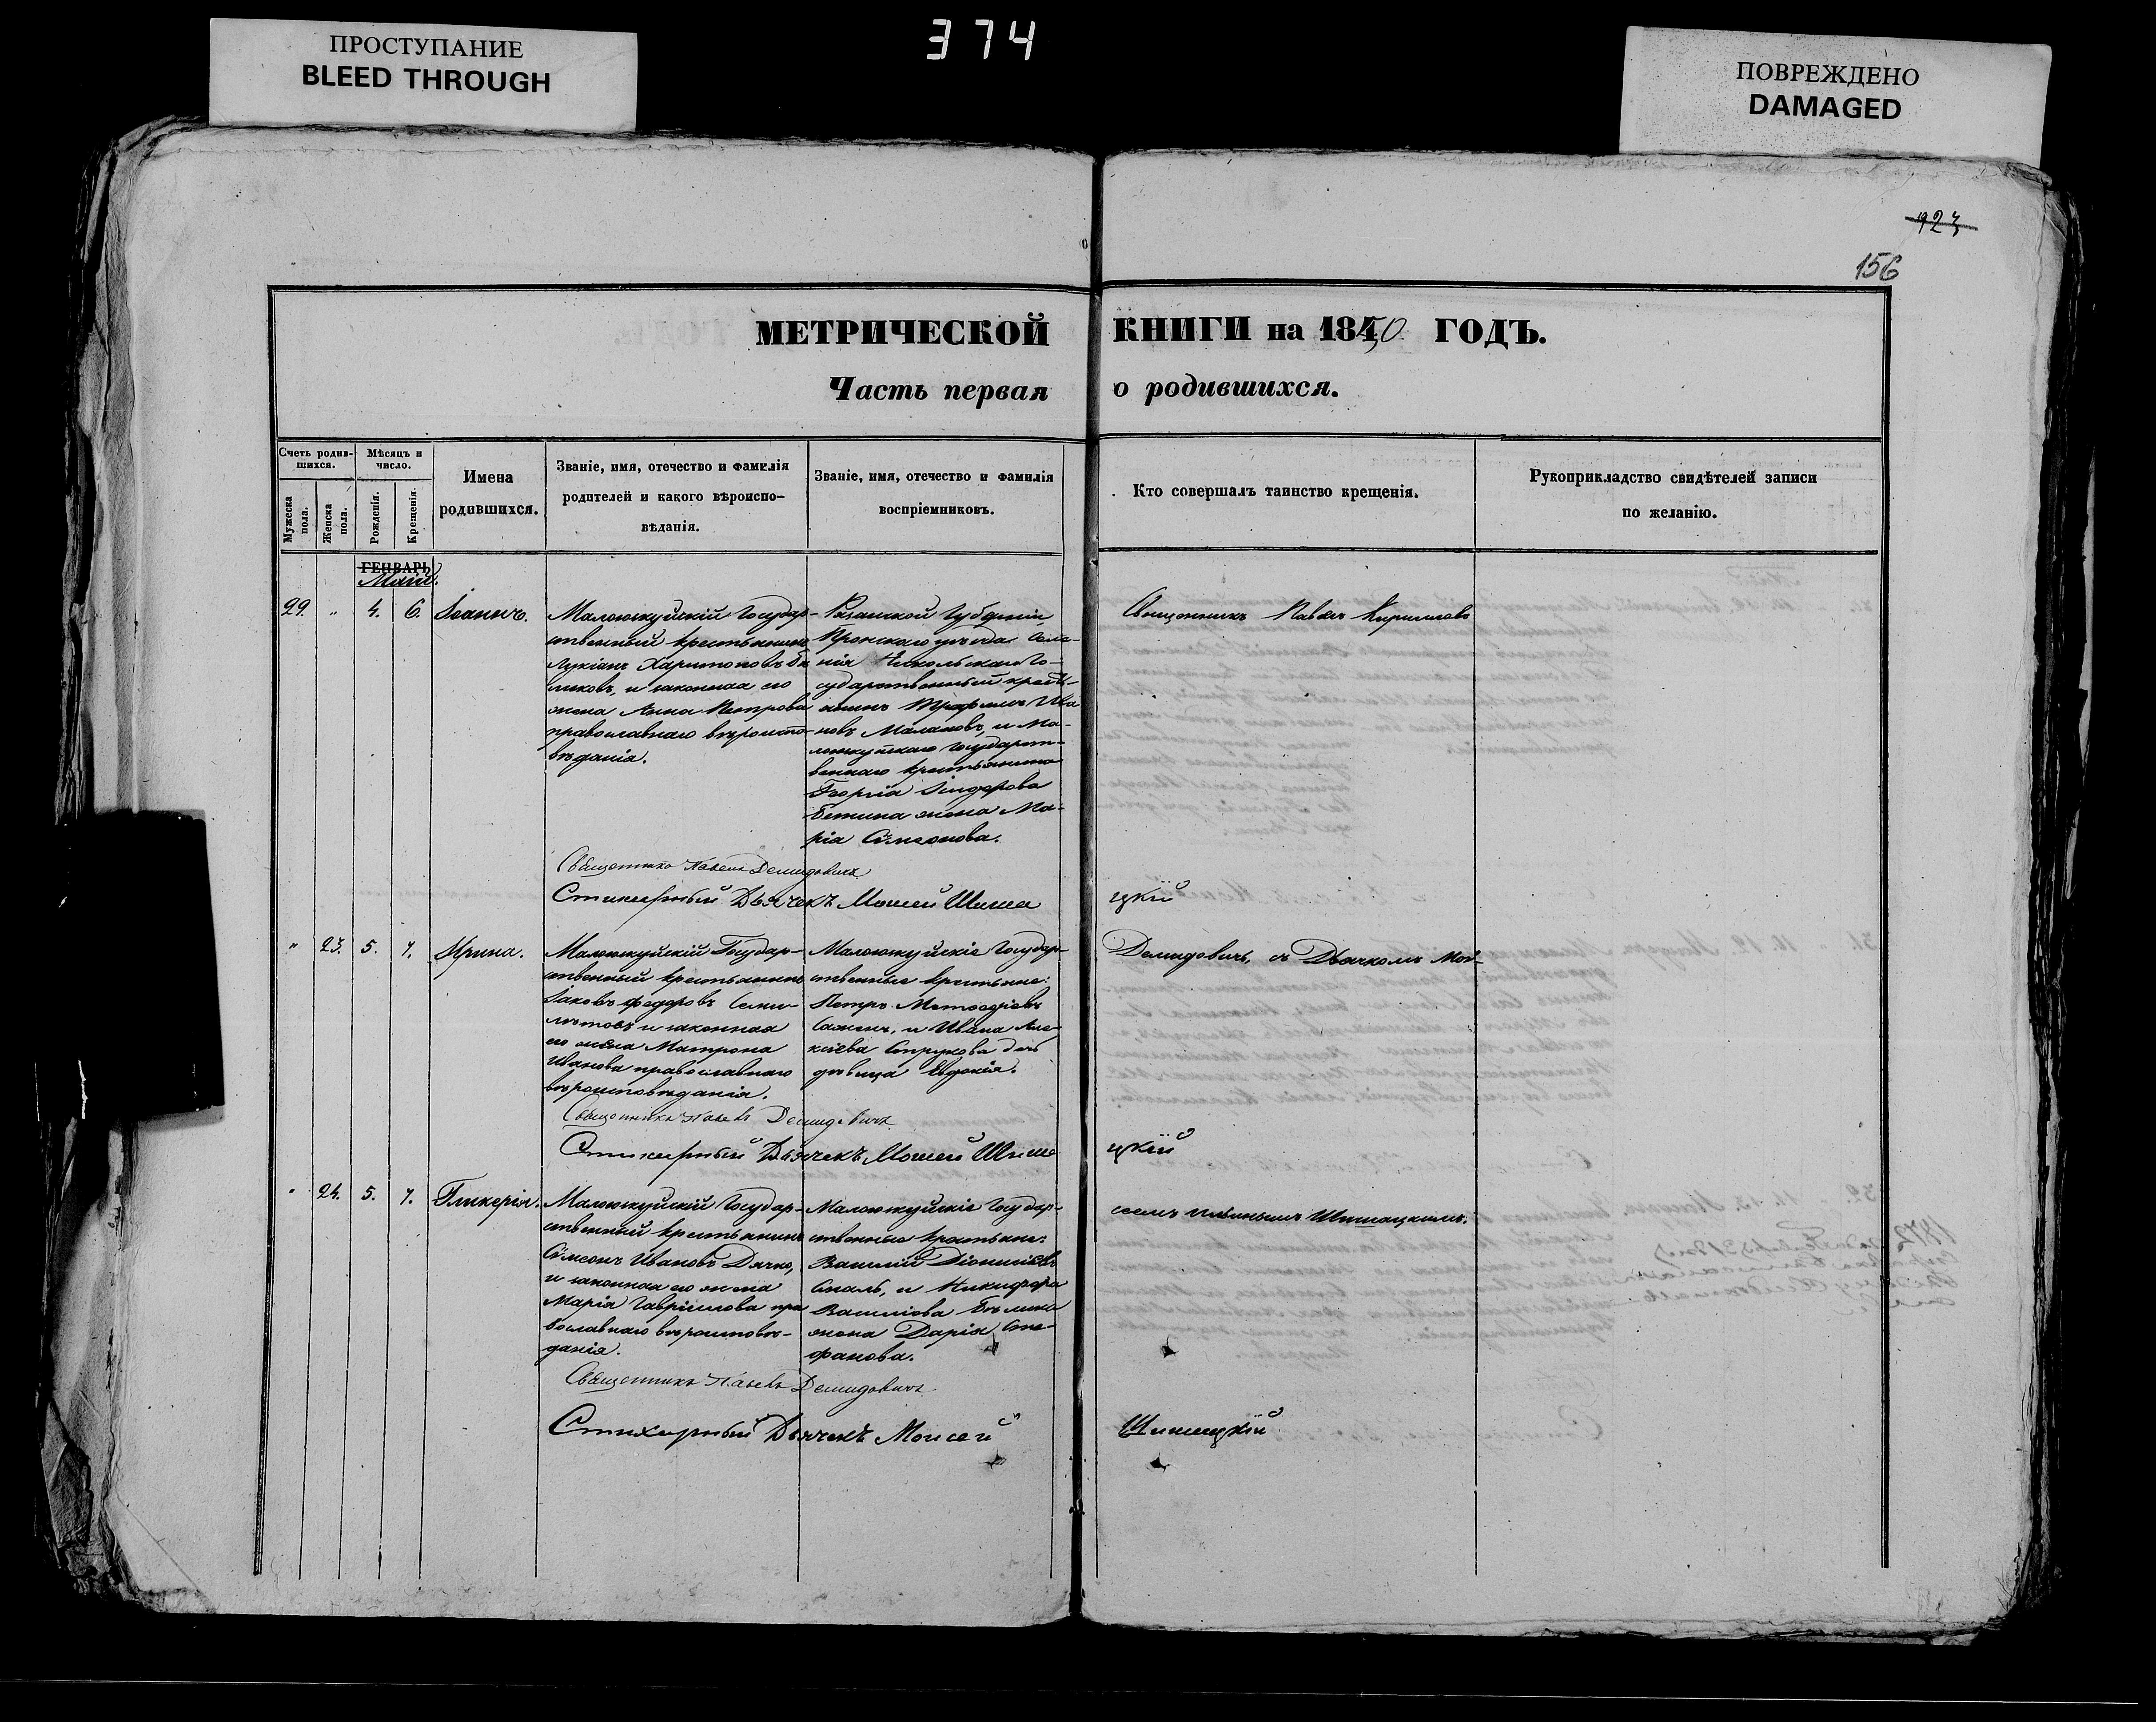 ПРОСТУПАНИЕ
BLEED THROUGH
374
ПОВРЕЖДЕНО
DAMAGED
923
156
МЕТРИЧЕСКОЙ КНИГИ на 1850 ГОДЪ.
Часть первая о родившихся.
Счетъ родив-
шихся.
Мужеска
пола.
Женска
пола.
Мѣсяцъ и
число.
Рожденія.
Крещенія.
Имена
родившихся.
Званіе, имя, отечество и фамилія
родителей и какого вѣроиспо-
вѣданія.
Званіе, имя, отечество и фамилія
воспріемниковъ.
Кто совершалъ таинство крещенія.
Рукоприкладство свидѣтелей записи
по желанію.
ГЕНВАРЬ
Маій.
29. " 4. 6. Іоаннъ.
Малоюкуйскій Государ-
ственный крестьянинъ
Лукіанъ Харитоновъ
и законная его
жена Анна Петрова
православнаго вѣроиспо-
вѣданія.
Рязанской Губерніи
Пронскаго уѣзда Селе-
нія Никольскаго Го-
сударственный кресть-
янинъ Трофимъ Ива
новъ Малаховъ, и Ма-
лоюкуйскаго Государст-
веннаго крестьянина
Георгія Сидорова
жена Ма-
рія Сѵмеонова.
Священникъ Павелъ Кириловъ
Священникъ Павелъ Демидовичъ
Стихарный Дьячекъ Моисей Шиша
цкій
" 23. 5. 7. Ирина.
Малоюкуйскій Государ-
ственный крестьянинъ
Іаковъ Федоровъ Семи-
лѣтовъ и законная
его жена Матрона
Иванова православнаго
вѣроисповѣданія.
Малоюкуйскіе Государ-
ственные крестьяне:
Петръ Меѳодіевъ
и Ивана Але-
ксіева Струкова дочь
дѣвица Евдокія.
Демидовичъ, съ Дьячкомъ Мои-
Священникъ Павелъ Демидовичъ
Стихарный Дьячекъ Моисей Шиша
цкій
" 24. 5. 7. Гликерія.
Малоюкуйскій Государ-
ственный крестьянинъ
Сѵмеонъ Ивановъ Дячко,
и законная его жена
Марія Гавріилова пра
вославнаго вѣроисповѣ-
данія.
Малоюкуйскіе Государ-
ственные крестьяне:
Василій Діонисіевъ
и Никифора
Василіева
жена Дарія Сте-
фанова.
сеемъ Шишацкимъ.
Священникъ Павелъ Демидовичъ
Стихарный Дьячекъ Моисей
Шишацкій